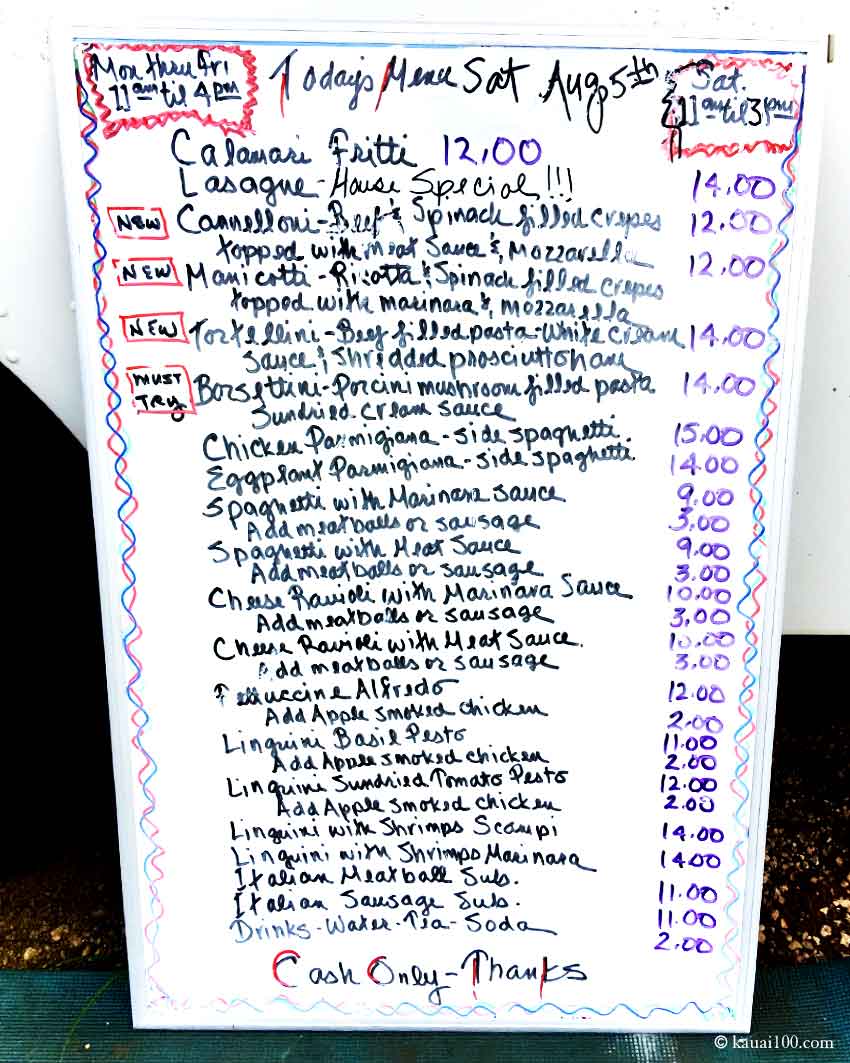 Mon thru Fri
11am til 4pm
Today's Menu Sat Aug 5th
Sat.
11am til 3pm
Calamari Fritti 12.00
Lasagne - House Special!!! 14.00
NEW Cannelloni - Beef & Spinach filled crepes 12.00
topped with meat Sauce & Mozzarella
NEW Manicotti - Ricotta & Spinach filled crepes 12.00
topped with marinara & mozzarella
NEW Tortellini - Beef filled pasta - White cream 14.00
Sauce & shredded prosciutto ham
MUST TRY Borsettini - Porcini mushroom filled pasta 14.00
Sundried cream sauce
Chicken Parmigiana - side spaghetti. 15.00
Eggplant Parmigiana - side spaghetti. 14.00
Spaghetti with Marinara sauce 9.00
Add meatballs or sausage 3.00
Spaghetti with Meat Sauce 9.00
Add meatballs or sausage 3.00
Cheese Ravioli with Marinara Sauce 10.00
Add meatballs or sausage 3.00
Cheese Ravioli with Meat Sauce. 10.00
Add meatballs or sausage 3.00
Fettuccine Alfredo 12.00
Add Apple smoked chicken 2.00
Linguini Basil Pesto 11.00
Add Apple smoked chicken 2.00
Linguini Sundried Tomato Pesto 12.00
Add Apple smoked chicken 2.00
Linguini with Shrimps Scampi 14.00
Linguini with Shrimps Marinara 14.00
Italian Meatball Sub. 11.00
Italian Sausage Sub. 11.00
Drinks - Water - Tea - Soda 2.00
Cash Only - Thanks
© kauai100.com